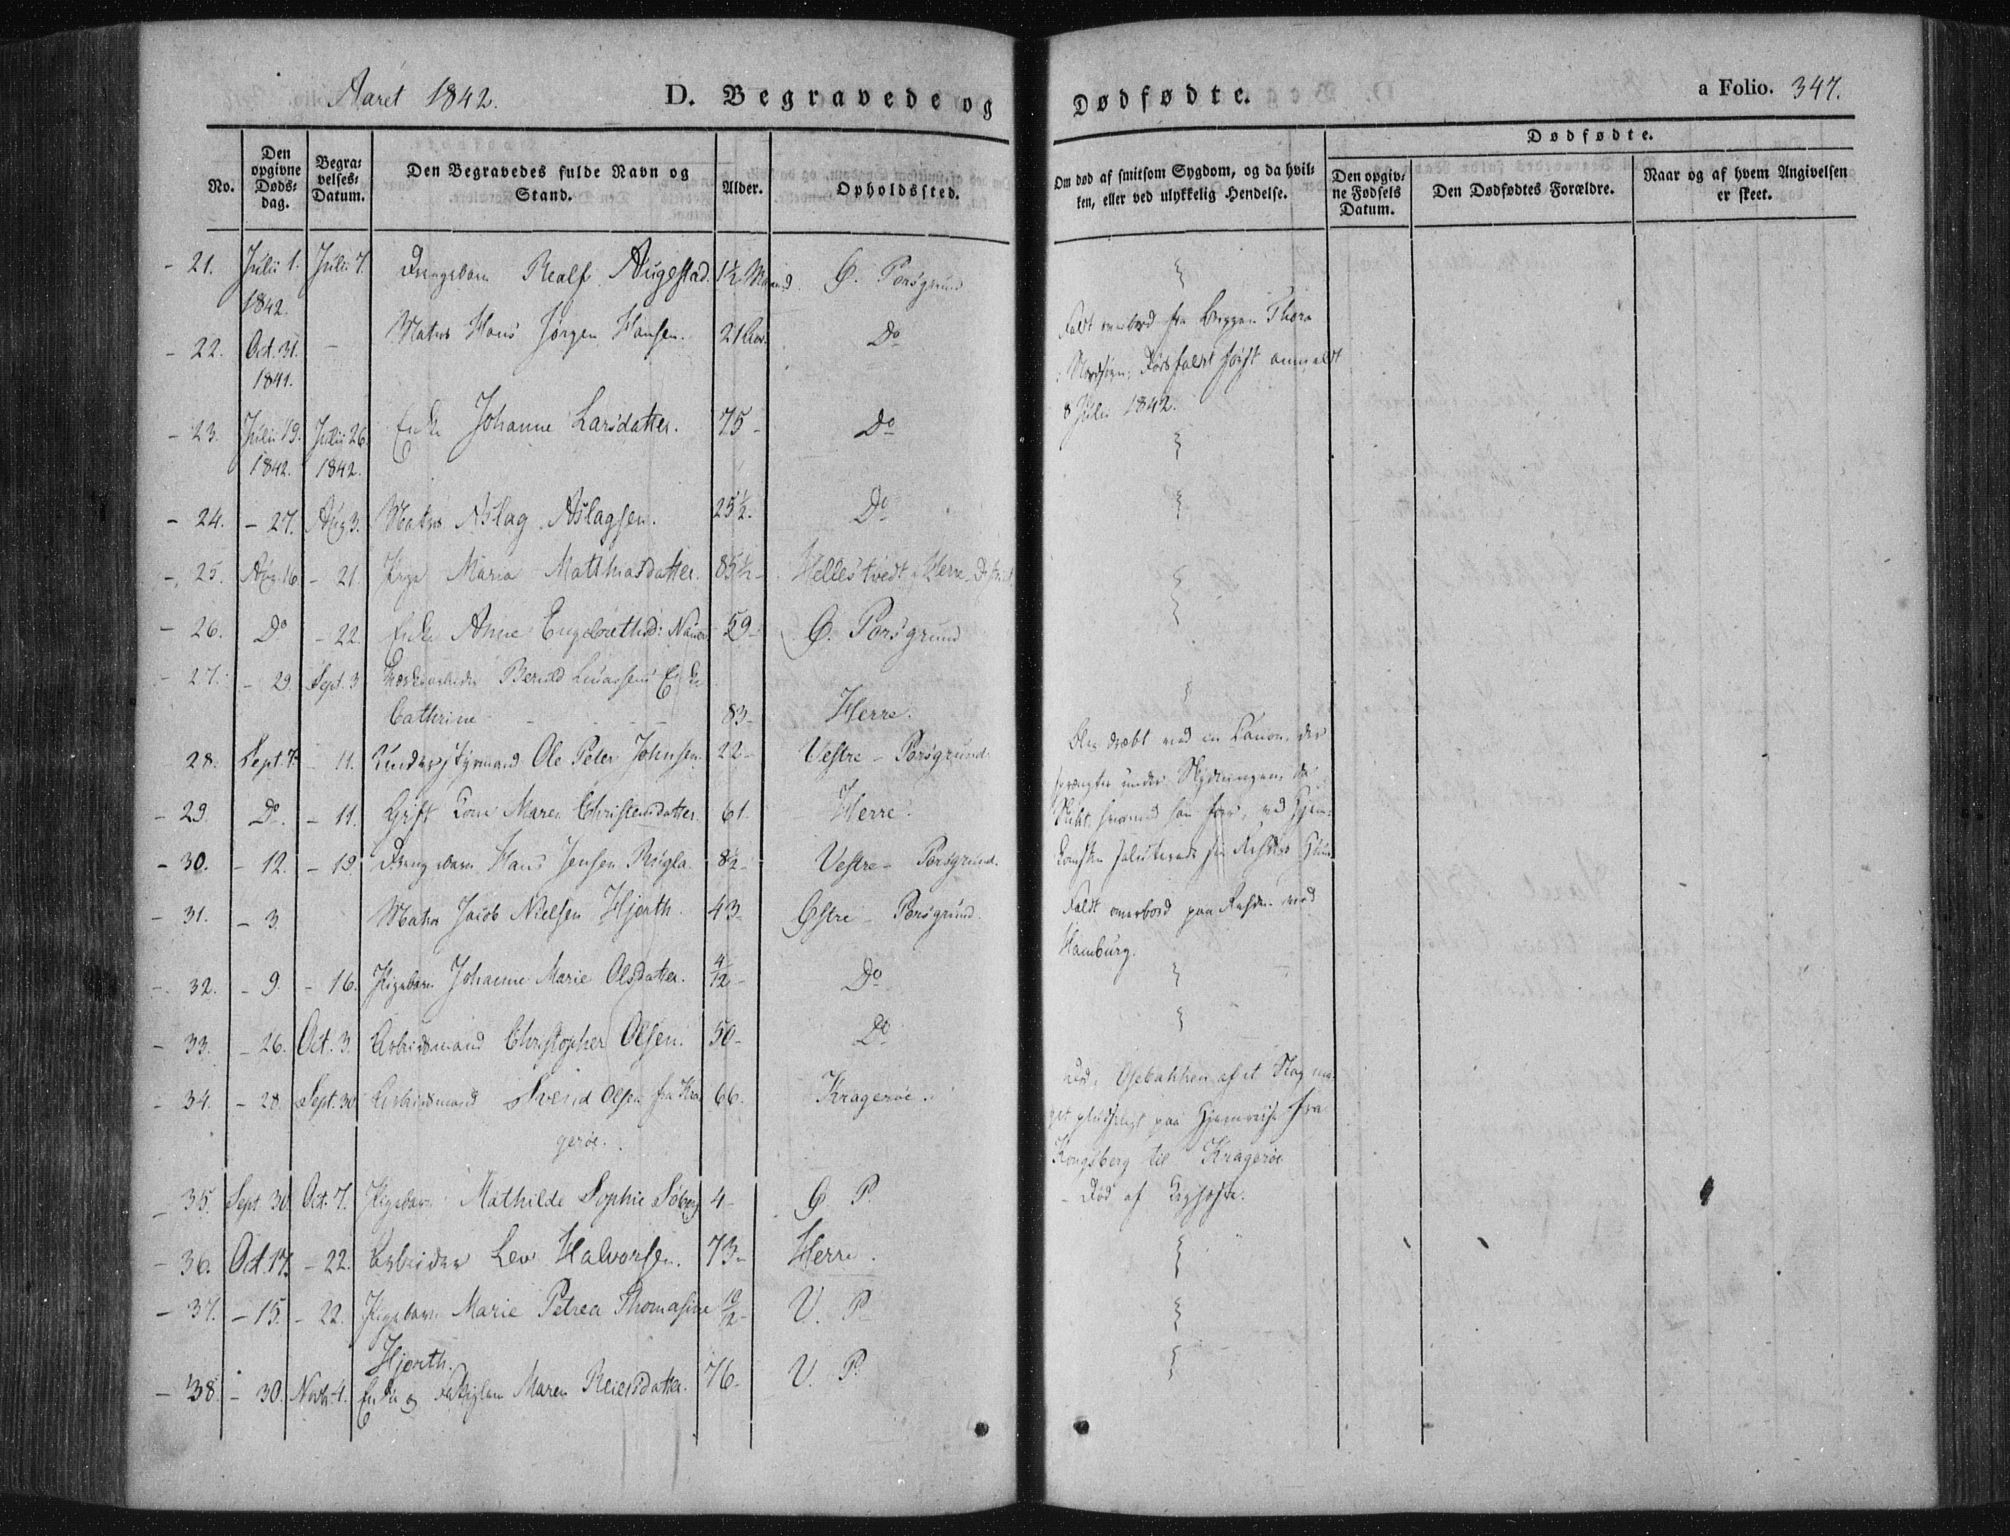 Aaret 1842. D. Begravede og Dødfødte. a Folio. 347.
No. Den opgivne Døds-dag. Begra-velses-Datum. Den Begravedes fulde Navn og Stand. Alder. Opholdssted. Om død af smitsom Sygdom, og da hvil-ken, eller ved ulykkelig Hendelse. Dødfødte.
Den opgiv-ne Fødsels Datum. Den Dødfødtes Forældre. Naar og af hvem Angivelsen er skeet.
21. Julii 1. 1842. Julii 7. Drengebarn Realf Augestad. 1½ Maaned Ø. Porsgrund
22. Oct. 31. 1841. — Matros Hans Jørgen Hansen. 21 Aar. Do Faldt overbord fra Briggen Thora
i Nordsøen; Dødsfaldet først anmeldt
8 Julii 1842.
23. Julii 19. 1842. Julii 26. 1842. Enke Johanne Larsdatter. 75 - Do
24. - 27. Aug 3. Matros Aslag Aslagsen. 25½. Do
25. Aug. 16 - 21. Pige Maria Matthiasdatter. 85½ - Hellestvedt, Herre
26. Do - 22. Enke Anne 59 - Ø. Porsgrund
27. - 29. Sept. 3 Enke
Cathrine - - - 83 - Herre.
28. Sept. 7 - 11. Understyrmand Ole Peter Johnsen. 22 - Vestre - Porsgrund. Blev dræbt ved en Canon, der
sprængtes under Skydningen, da
29. Do. - 11. Gift Kone Maren Christensdatter. 61. Herre.
30. - 12. - 19 Drengebarn Hans Jensen 8½ - Vestre - Porsgrund.
31. - 3. Matros Jacob Nielsen Hjorth. 43 - Østre - Porsgrund. Faldt overbord paa Rheden ved
Hamburg.
32. - 9. - 16. Pigebarn Johanne Marie Olsdatter. 4/12 - Do
33. - 26. Oct. 3. Arbeidsmand Christopher Olsen. 50 - Do
34. - 28. Sept. 30 Arbeidsmand Svend Olsen fra Kra
gerøe. 66. Kragerøe. Død i Osebakken af et Slag
pludseligt paa Hjemreise fra
Kongsberg til Kragerøe
35. Sept. 30. Oct. 7. Pigebarn Mathilde Sophie Søberg 4 - Ø. P. - Død af
36. Oct. 17. - 22. Arbeider Lev Halvorsen. 73 - Herre.
37. - 15. - 22. Pigebarn Marie Petrea Thomasine
Hjorth. 10/12 - V. P.
38. - 30. Novb. 4. Enke og Maren Reiersdatter. 76 - V. P.